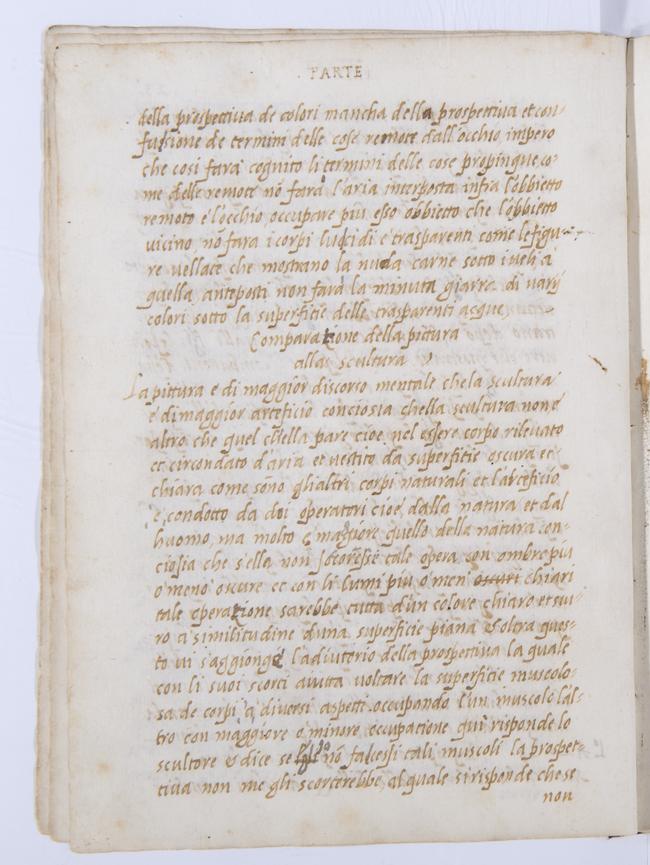 . PARTE
della prospettiva de colori mancha della prospettiva et con-
fusione de termini delle cose remote dall'occhio, impero
che cosi fara cognito li termini delle cose propinque, co-
me delle remote nō farà l'aria interposta infra l'obbietto
remoto e l'occhio, occupare piu esso obbietto che l'obbietto
vicino, nō fara i corpi lucidi e trasparenti come le figu-
re vellate che mostrano la nuda carne sotto i veli a
quella anteposti non farà la minuta giarra di varij
colori sotto la superficie delle trasparenti acque
Comparatione della pittura
alla scultura
La pittura e di maggior discorso mentale che la scultura
e di maggior arteficio conciosia chella scultura non è
altro che quel chella pare cioe nel essere corpo rilevato
et circondato d'aria et vestito da superfitie oscura et
chiara come sono gli altri corpi naturali et l'arteficio
è condotto da doi operatori cioè dalla natura et dal
huomo, ma molto è maggiore quello della natura con-
ciosia che s'ella non soccoresse tale opera con ombre piu
o meno oscure et con li lumi piu o men oscuri chiari
tale operazione sarebbe tutta d'un colore chiaro et scu-
ro a similitudine d'una superficie piana & oltra ques-
to vi s'aggionge l'adiutorio della prospettiva la quale
con li suoi scorci aiuta voltare la superfitie muscolo-
sa de corpi a diversi aspetti occupando l'un muscolo l'al-
tro con maggiore o minore occupatione qui risponde lo
scultore & dice se io nō facessi tali muscoli la prospet-
tiva non me gli scorterebbe, al quale si risponde che se
non